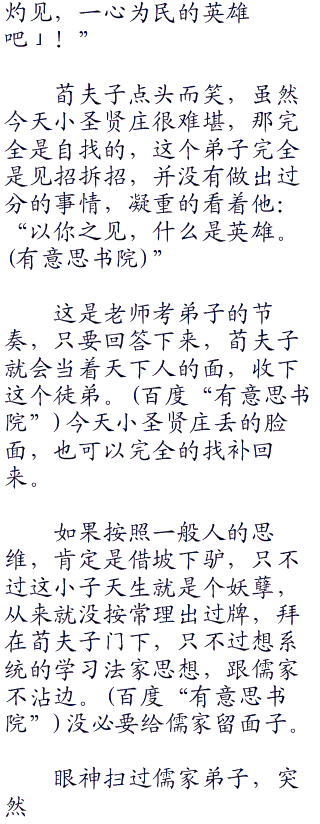 灼见，一心为民的英雄
吧」！”
荀夫子点头而笑，虽然
今天小圣贤庄很难堪，那完
全是自找的，这个弟子完全
是见招拆招，并没有做出过
分的事情，凝重的看着他：
“以你之见，什么是英雄。
(有意思书院)”
这是老师考弟子的节
奏，只要回答下来，荀夫子
就会当着天下人的面，收下
这个徒弟。(百度“有意思书
院”)今天小圣贤庄丢的脸
面，也可以完全的找补回
来。
如果按照一般人的思
维，肯定是借坡下驴，只不
过这小子天生就是个妖孽，
从来就没按常理出过牌，拜
在荀夫子门下，只不过想系
统的学习法家思想，跟儒家
不沾边。(百度“有意思书
院”)没必要给儒家留面子。
眼神扫过儒家弟子，突
然